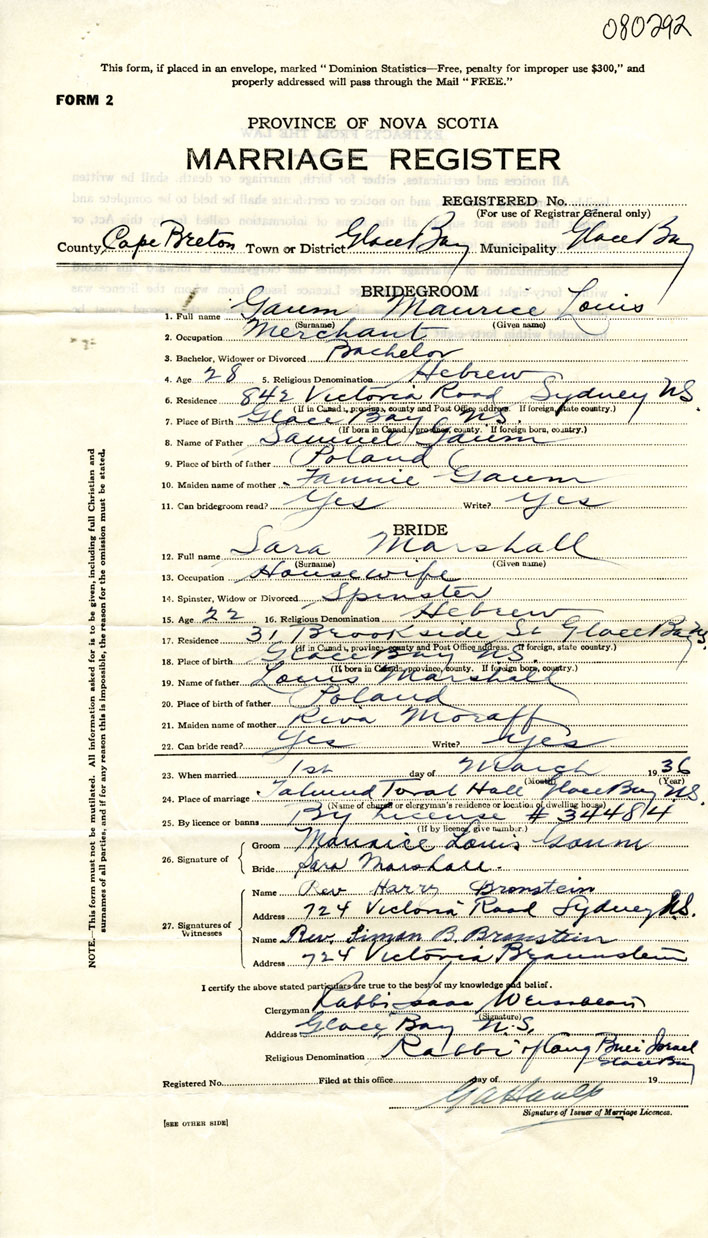 080292
This form, if placed in an envelope, marked "Dominion Statistics—Free, penalty for improper use $300," and
properly addressed will pass through the Mail "FREE."
FORM 2
PROVINCE OF NOVA SCOTIA
MARRIAGE REGISTER
REGISTERED No.
(For use of Registrar General only)
County Cape Breton Town or District Glace Bay Municipality Glace Bay
BRIDEGROOM
1. Full name Gaum Maurice Louis
(Surname) (Given name)
2. Occupation Merchant
3. Bachelor, Widower or Divorced Bachelor
4. Age 28 5. Religious Denomination Hebrew
6. Residence 842 Victoria Road Sydney N.S.
(If in Canada, province, county and Post Office address. If foreign, state country.)
7. Place of Birth Glace Bay N.S.
(If born in Canada, province, county. If foreign born, country.)
8. Name of Father Samuel Gaum
9. Place of birth of father Poland
10. Maiden name of mother Fannie Gaum
11. Can bridegroom read? Yes Write? Yes
BRIDE
12. Full name Sara Marshall
(Surname) (Given name)
13. Occupation Housewife
14. Spinster, Widow or Divorced Spinster
15. Age 22 16. Religious Denomination Hebrew
17. Residence 31 Brookside St Glace Bay N.S.
(If in Canada, province, county and Post Office address. If foreign, state country.)
18. Place of birth Glace Bay N.S.
(If born in Canada, province, county. If foreign born, country.)
19. Name of father Louis Marshall
20. Place of birth of father Poland
21. Maiden name of mother Riva Moraff
22. Can bride read? Yes Write? Yes
23. When married 1st day of March 1936
(Month) (Year)
24. Place of marriage Talmud Torah Hall Glace Bay N.S.
(Name of church or clergyman's residence or location of dwelling house)
25. By licence or banns By License # 34484
(If by licence, give number.)
26. Signature of
Groom Maurice Louis Gaum
Bride Sara Marshall.
27. Signatures of Witnesses
Name Rev Harry Bronstein
Address 724 Victoria Road Sydney N.S.
Name Rev. Simon B. Bronstein
Address 724 Victoria Braunstein
I certify the above stated particulars are true to the best of my knowledge and belief.
Clergyman Rabbi Isaac
(Signature)
Address Glace Bay N.S.
Religious Denomination Rabbi of Cong Bnei Israel
Glace Bay
Registered No. Filed at this office day of 19
Signature of Issuer of Marriage Licences.
[SEE OTHER SIDE]
NOTE.—This form must not be mutilated. All information asked for is to be given, including full Christian and
surnames of all parties, and if for any reason this is impossible, the reason for the omission must be stated.